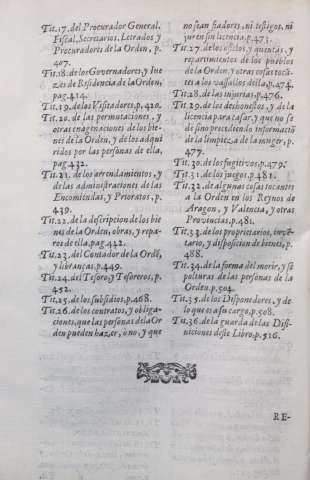 Tit.17. del Procurador General,
Fiscal, Secretarios, Letrados y
Procuradores de la Orden, p.
407.
Tit.18. de los Governadores, y Iue
zes de Residencia de la Orden,
pag.414.
Tit.19. de las Visitadores, p.420.
Tit.20. de las permutaciones, y
otras enagenaciones de los bie-
nes de la Orden, y de los adqui
ridos por las personas de ella,
pag.432.
Tit.21. de los arrendamientos, y
de las administraciones de las
Encomiendas, y Prioratos, p.
439.
Tit.22. de la descripcion de los bie
nes de la Orden, obras, y repa-
ros de ella, pag.442.
Tit.23. del Contador de la Ordē,
y libranças, p.449.
Tit.24. del Tesoro, y Tesoreros, p.
452.
Tit.25. de los subsidios, p.468.
Tit.26. de los contratos, y obliga-
ciones, que las personas dela Or
den pueden hazer, o no, y que
no sean fiadores, ni testigos, ni
juren sin licencia, p.473.
Tit.27. de los ofitos, y quentas, y
repartimientos de los pueblos
de la Orden, y otras cosas tocā-
tes a los vassallos della, p.474.
Tit.28. de las injurias, p.476.
Tit.29. de los deshonestos, y de la
licencia para casar, y que no se
de sino precediendo informaciō
de la limpieza de la muger, p.
477.
Tit.30. de los fugitivos, p.479.
Tit.31. de los juegos, p.481.
Tit.32. de algunas cosas tocantes
a la Orden en los Reynos de
Aragon, y Valencia, y otras
Provincias, p.481.
Tit.33. de los proprietarios, invē-
tario, y disposicion de bienes, p.
488.
Tit.34. de la forma del morir, y se
pulturas de las personas de la
Orden, p.504.
Tit.35. de los Disponedores, y de
lo que es a su cargo, p.508.
Tit.36. de la guarda de las Difi-
niciones deste Libro, p.516.
RE-